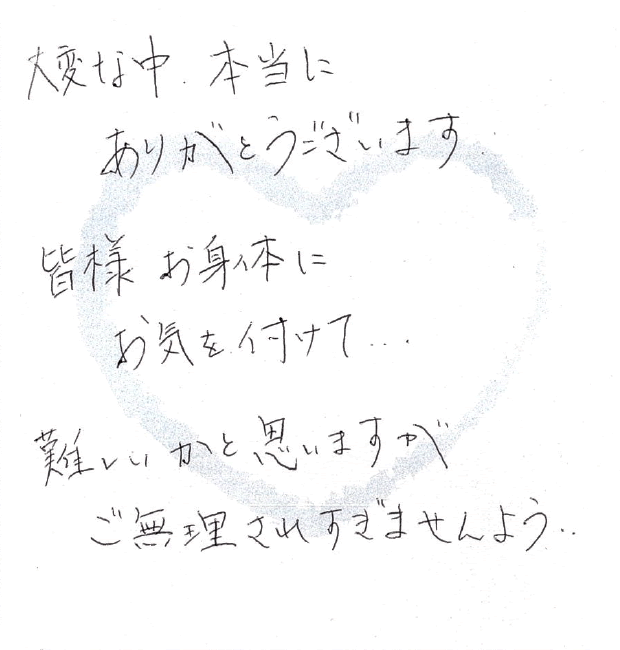 大変な中 本当に
ありがとうございます
皆様 お身体に
お気を付けて...
難しいかと思いますが
ご無理されすぎませんよう..